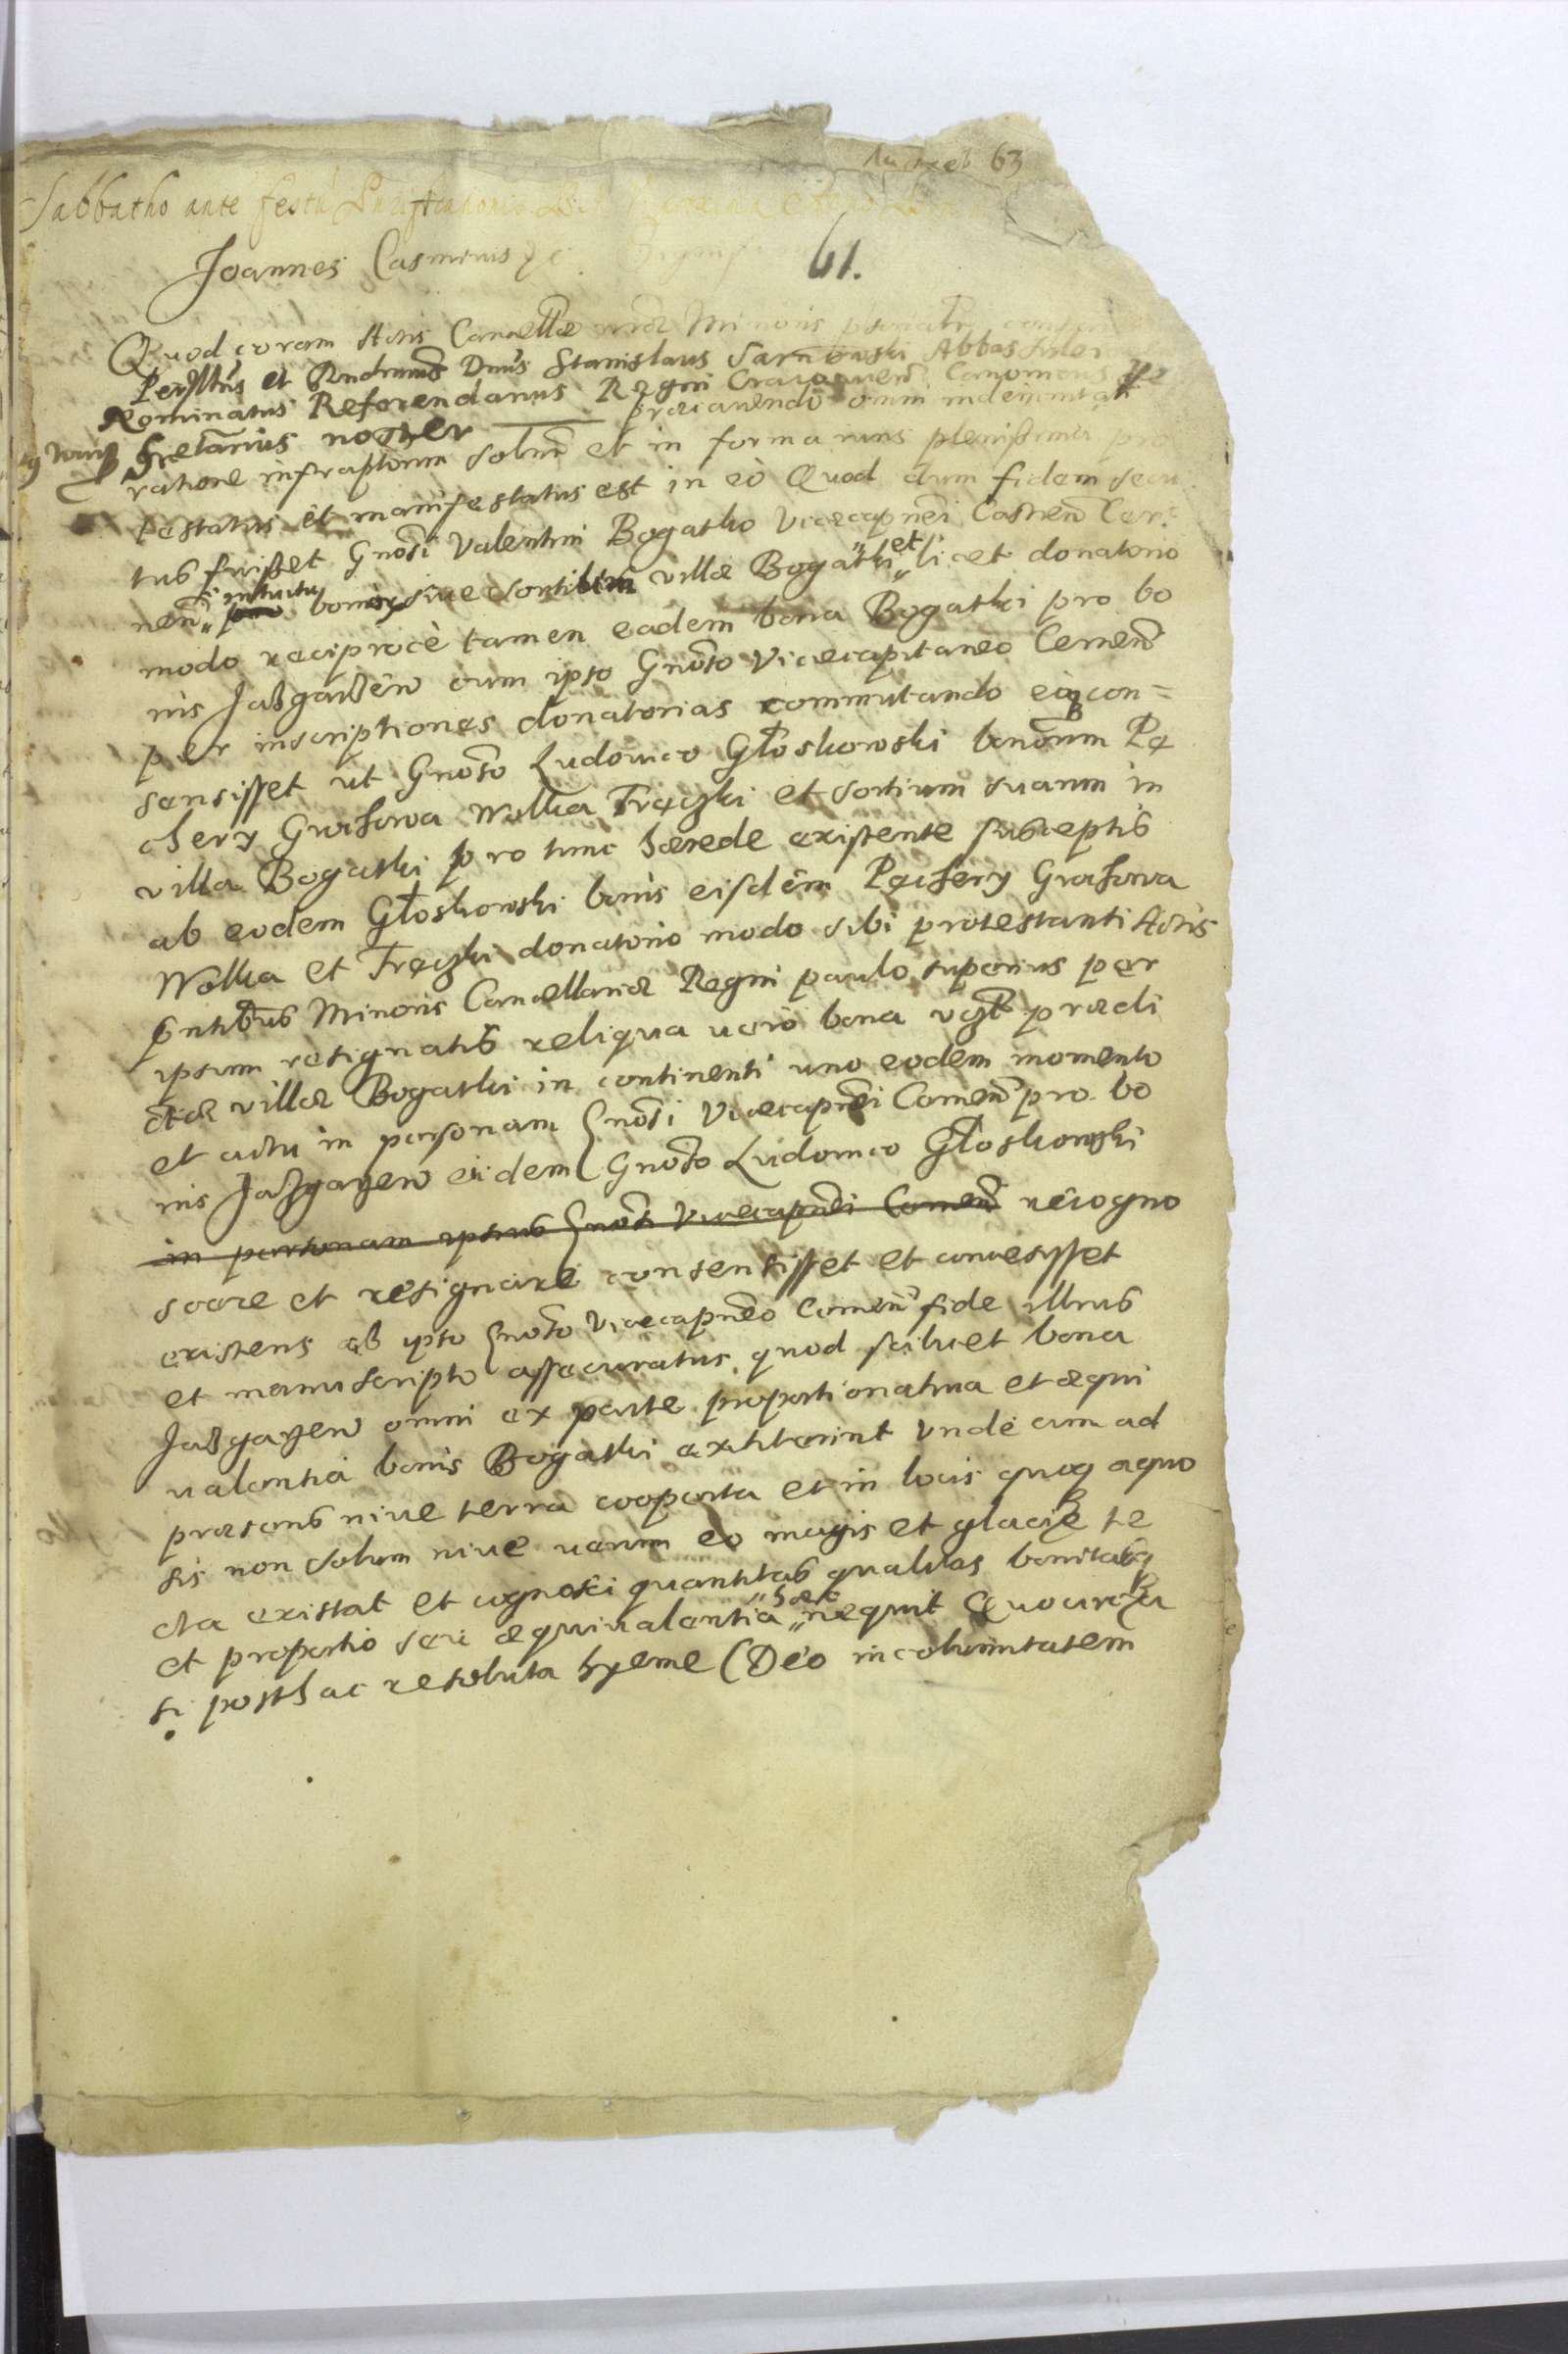 63
Sabbatho ante festũ Purificationis
Joannes Casimirus
61.
Quod coram Actis Cancellæ nræ Minoris psonalr
Perillris et Rndmus Dnus Stanislaus Sarnowski Abbas
Nominatus Referendarius Regni Cracovien Canonicus
Sretarius noster præcavendo omni indemnitati
ratione infrascriptorum solnr et in forma iuris plenissima pro
testatus et manifestatus est in eo Quod dum fidem secu
tus fuisset Gnosi Valentini Bogatko Vicecapnei Castren Cer
nen intuitu pro bonorum siue sortium villæ Bogatki et licet donatorio
modo reciproce tamen eadem bona Bogatki pro bo
nis Jazgarzen cum ipso Gnoso Vicecapitaneo Cernen
per inscriptiones donatorias commutando eoq con=
sensisset ut Gnoso Ludovico Głoskowski bonorum Pę
chery Grochowa Wolka Fręczki et sortium suarum in
villa Bogatki pro tunc hærede existente susceptis
ab eodem Głoskowski bonis eisdem Pęchery Grochowa
Wolka et Fręczki donatorio modo sibi protestanti Actis
pntibus Minoris Cancellariæ Regni paulo superius per
ipsum resignatis reliqua vero bona vgzt prædi
ctæ villæ Bogatki in continenti uno eodem momento
et actu in personam Gnosi Vicecapnei Cernen pro bo
nis Jazgarzen eidem Gnoso Ludovico Głoskowski
in personam ipsius Gnosi Vicecapnei Cernen recogno
scere et resignare consensisset et concessisset
existens ab ipso Gnoso Vicecapneo Cernen fide illius
et manuscripto assecuratus, quod scilicet bona
Jazgarzen omni ex parte proportionativa et æqui
valentia bonis Bogatki extiterint Unde cum ad
præsens niue terra cooperta et in locis quoq aquo
sis non solum niue verum eo magis et glacie te
cta existat et cognosci quantitas qualitas bonitasq
et proportio seu æquivalentia hæc nequit Quocirca
si posthac resoluta hyeme (Deo incolumitatem